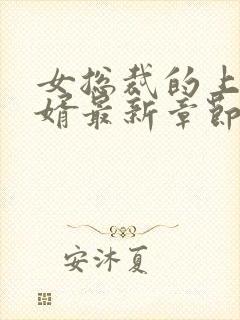 女总裁的上
婿最新章节
安沐夏